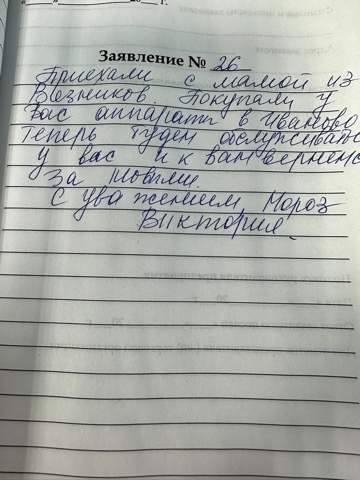 Заявление № 26
Приехали с мамой из
Вязников. Покупали у
Вас аппарат в Иваново
теперь будем обслуживаться
у вас и к вам вернемся
За новым.
С уважением, Мороз
Виктория.